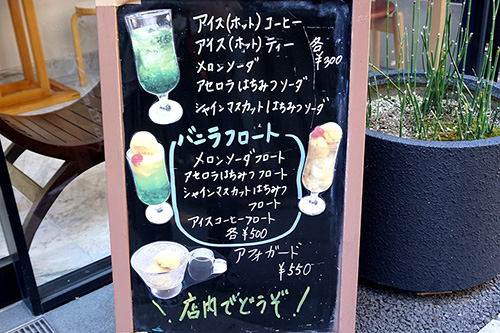 アイス(ホット)コーヒー
アイス(ホット)ティー
メロンソーダ
アセロラはちみつソーダ
シャインマスカットはちみつソーダ
各¥300
バニラフロート
メロンソーダフロート
アセロラはちみつフロート
シャインマスカットはちみつ
フロート
アイスコーヒーフロート
各¥500
アフォガード
¥550
店内でどうぞ!